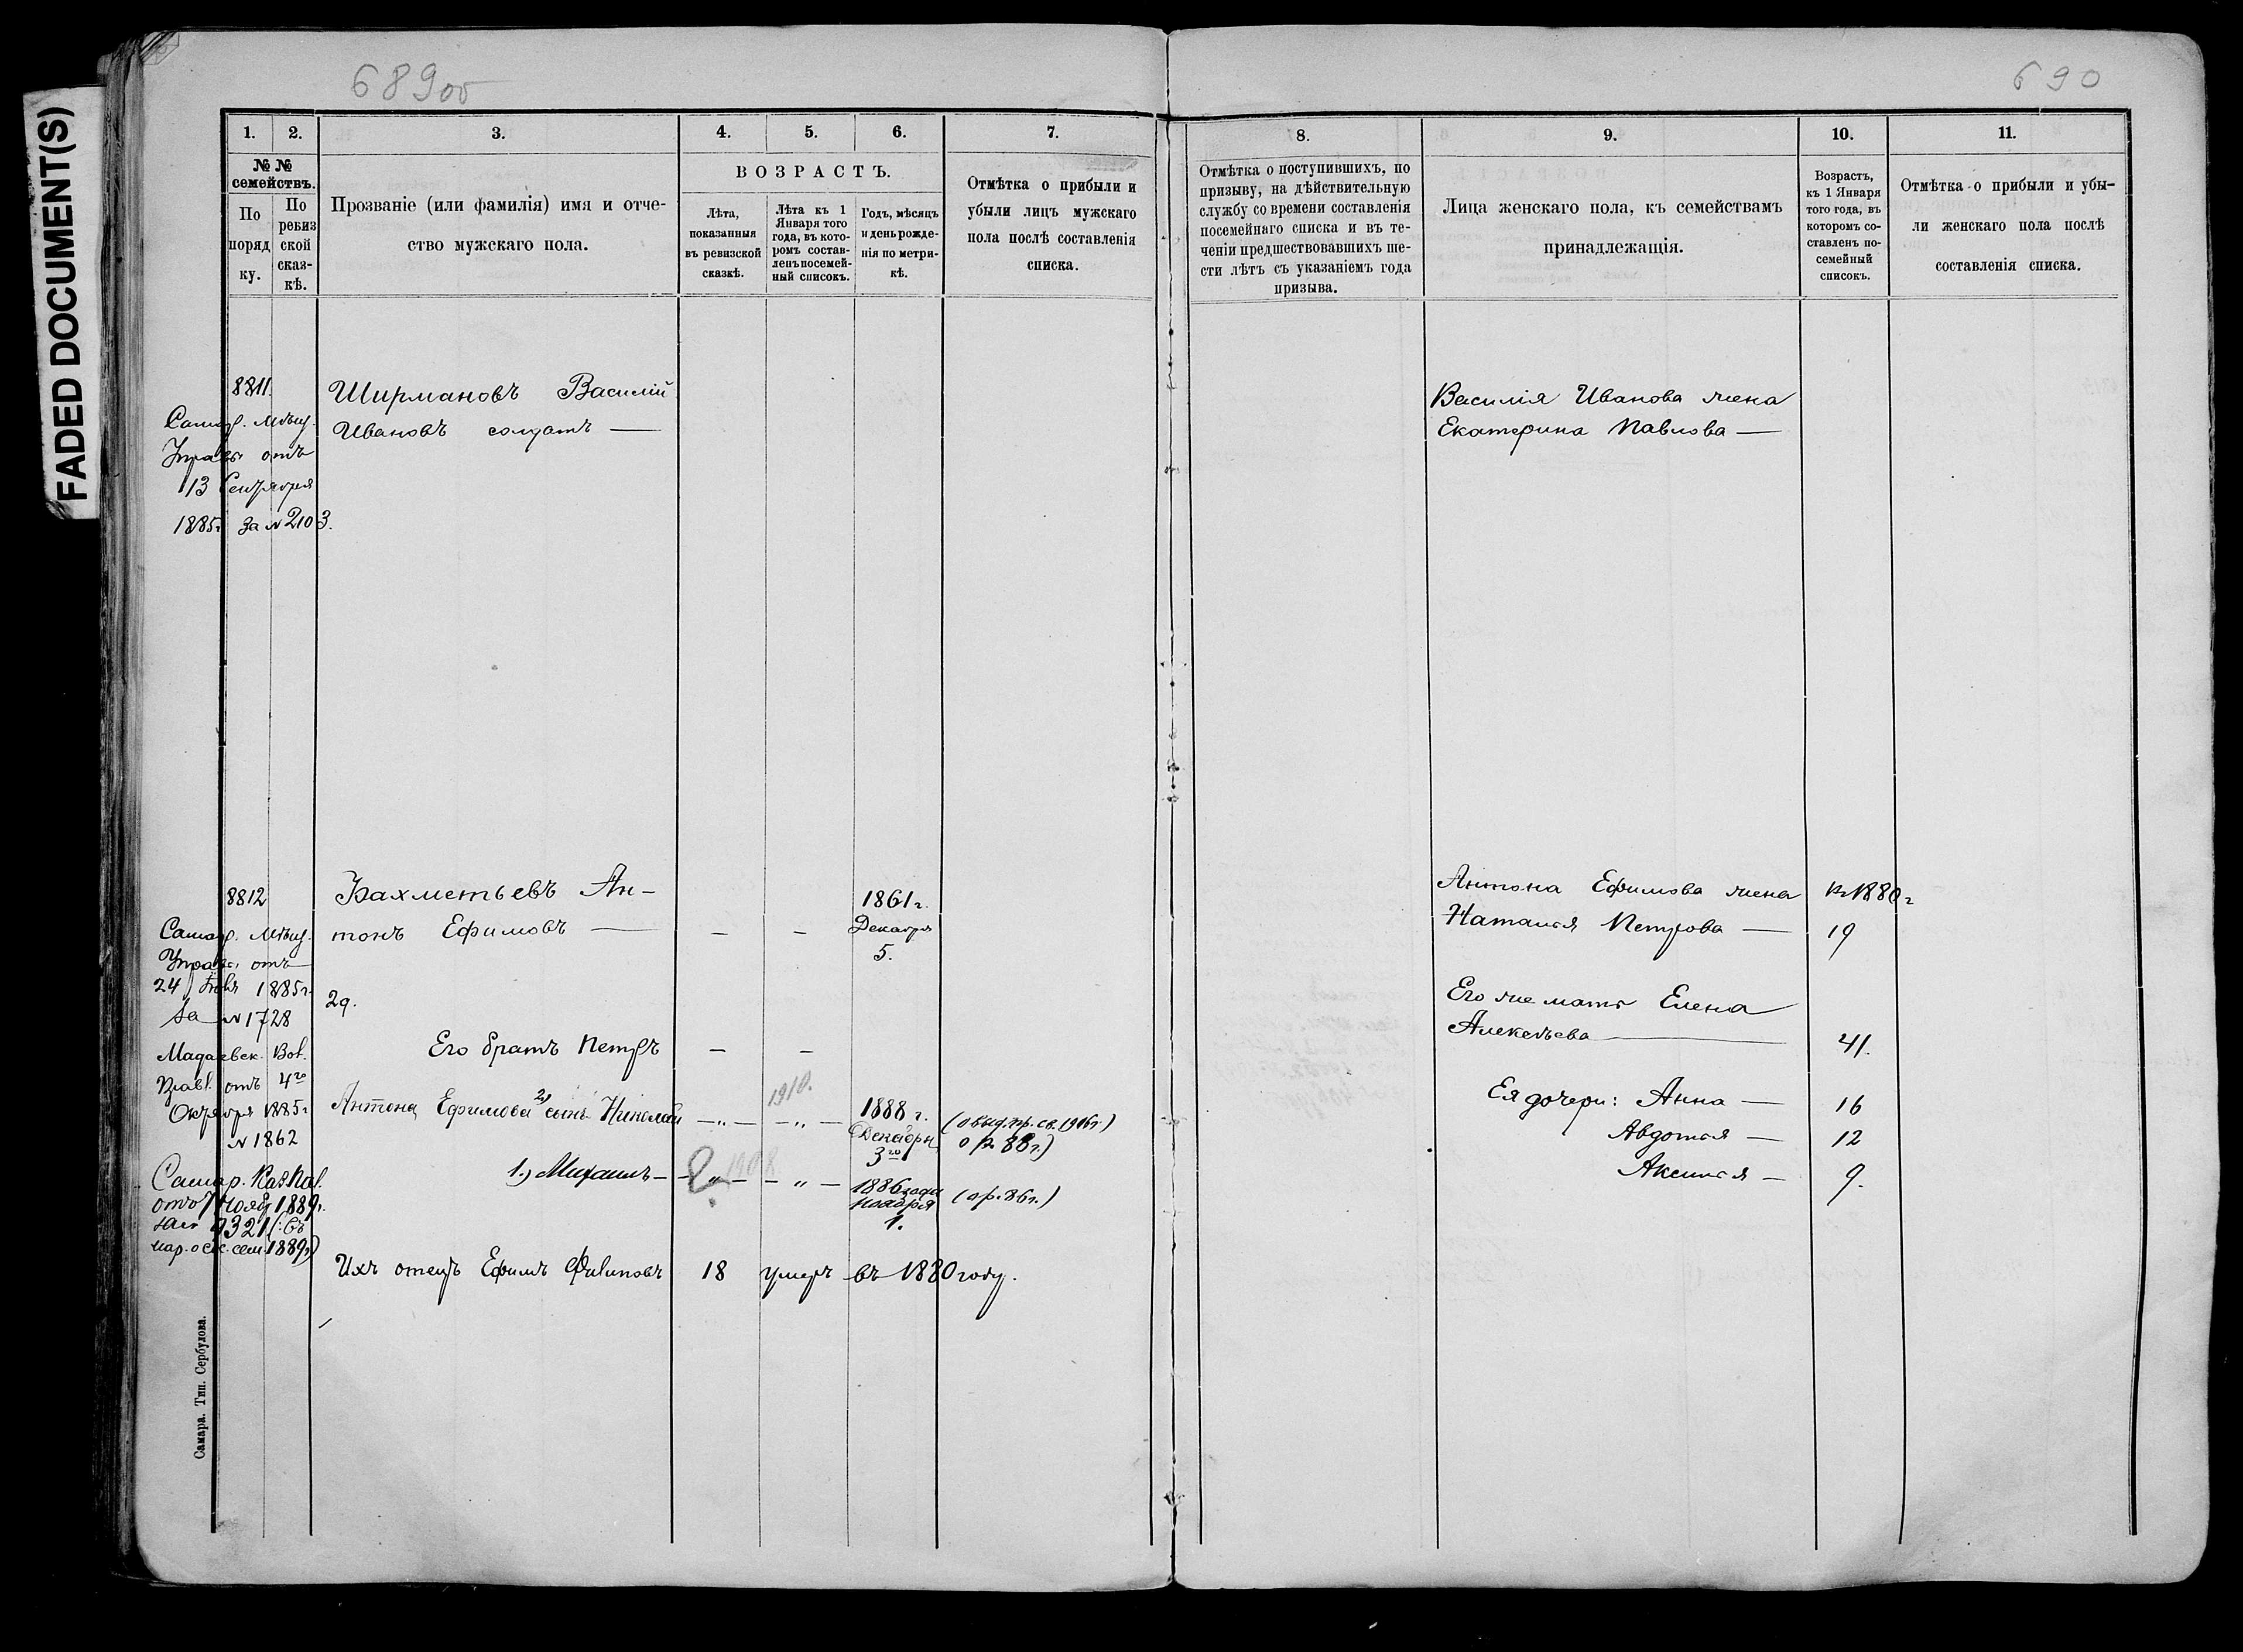 FADED DOCUMENT(S)
689об
690
1. 2. 3. 4. 5. 6. 7.
№ №
семействъ.
По
поряд
ку.
По
ревиз
ской
сказ-
кѣ.
Прозваніе (или фамилія) имя и отче-
ство мужскаго пола.
ВОЗРАСТЪ.
Лѣта,
показанныя
въ ревизской
сказкѣ.
Лѣта къ 1
Января того
года, въ кото-
ромъ состав-
ленъ посемей-
ный списокъ.
Годъ, мѣсяцъ
и день рожде-
нія по метри-
кѣ.
Отмѣтка о прибыли и
убыли лицъ мужскаго
пола послѣ составленія
списка.
8811.
Самар. Мѣщ.
Управы отъ
13 Сентября
1885г. за № 2103.
Ширмановъ Василій
Ивановъ солдатъ —
8812
Самар. Мѣщ.
Управы отъ
24 1885г.
за № 1728
Вол.
Правл. отъ 4го
Октября 1885г
№ 1862
Самар. Каз. Пал.
отъ 7 Нояб 1889г.
за № 9321 (съ
1889г)
Бахметьевъ Ан-
тонъ Ефимовъ — — — 1861г. Декабря 5.
Его братъ Петръ — —
1910.
Антона Ефимова 2) сынъ Николай — „ — — „ — 1888 г. Декабря 3го
1.) Михаилъ — — „ — — „ — 1886 года Ноября 1.
1908
Ихъ отецъ Ефимъ Филиповъ 18 умеръ въ 1880 году.
Самара. Тип. Сербулова.
8. 9. 10. 11.
Отмѣтка о поступившихъ, по
призыву, на дѣйствительную
службу со времени составленія
посемейнаго списка и въ те-
ченіи предшествовавшихъ ше-
сти лѣтъ съ указаніемъ года
призыва.
Лица женскаго пола, къ семействамъ
принадлежащія.
Возрастъ,
къ 1 Января
того года, въ
которомъ со-
ставленъ по-
семейный
списокъ.
Отмѣтка о прибыли и убы-
ли женскаго пола послѣ
составленія списка.
Василія Иванова жена
Екатерина Павлова —
Антона Ефимова жена въ 1880г
Наталья Петрова — 19
Его же мать Елена
Алексѣева — 41.
Ея дочери: Анна — 16
Авдотья — 12
Аксинья — 9.